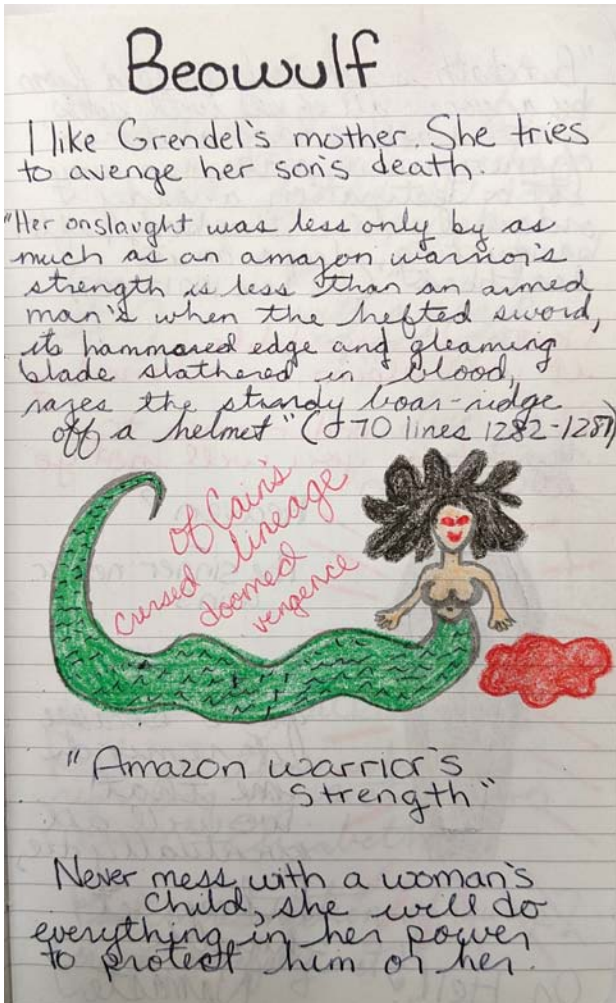 Beowulf
I like Grendel's mother. She tries
to avenge her son's death.
"Her onslaught was less only by as
much as an amazon warrior's
strength is less than an armed
man's when the hefted sword,
its hammared edge and gleaming
blade slathered in blood,
razes the sturdy boar-ridge
off a helmet" (70 lines 1282-1287)
of Cain's
cursed lineage
doomed
vengence
"Amazon warrior's
strength"
Never mess with a woman's
child, she will do
everything in her power
to protect him or her.